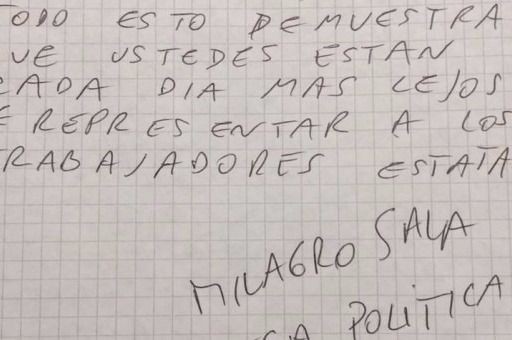 TODO ESTO DEMUESTRA
UE USTEDES ESTAN
CADA DIA MAS LEJOS
E REPRESENTAR A LOS
TRABAJADORES ESTATA
MILAGRO SALA
CA POLITICA